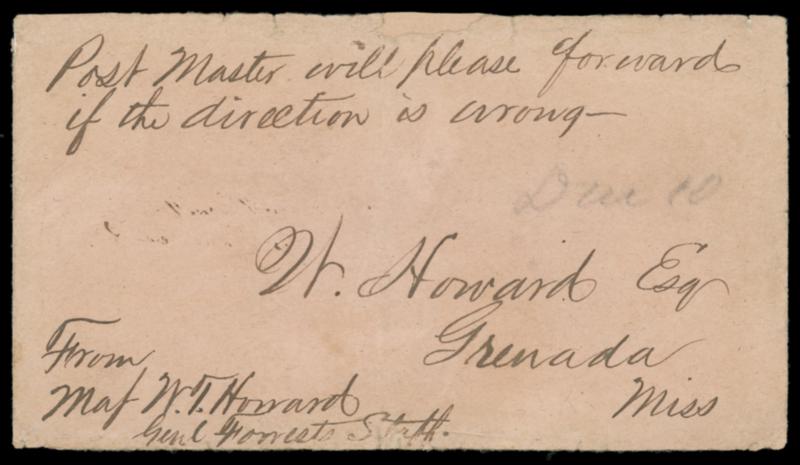 Post Master will please forward
if the direction is wrong—
Due 10
W. Howard Esq
Grenada
Miss
From
Maj W.T. Howard
Genl Forrests Staff.